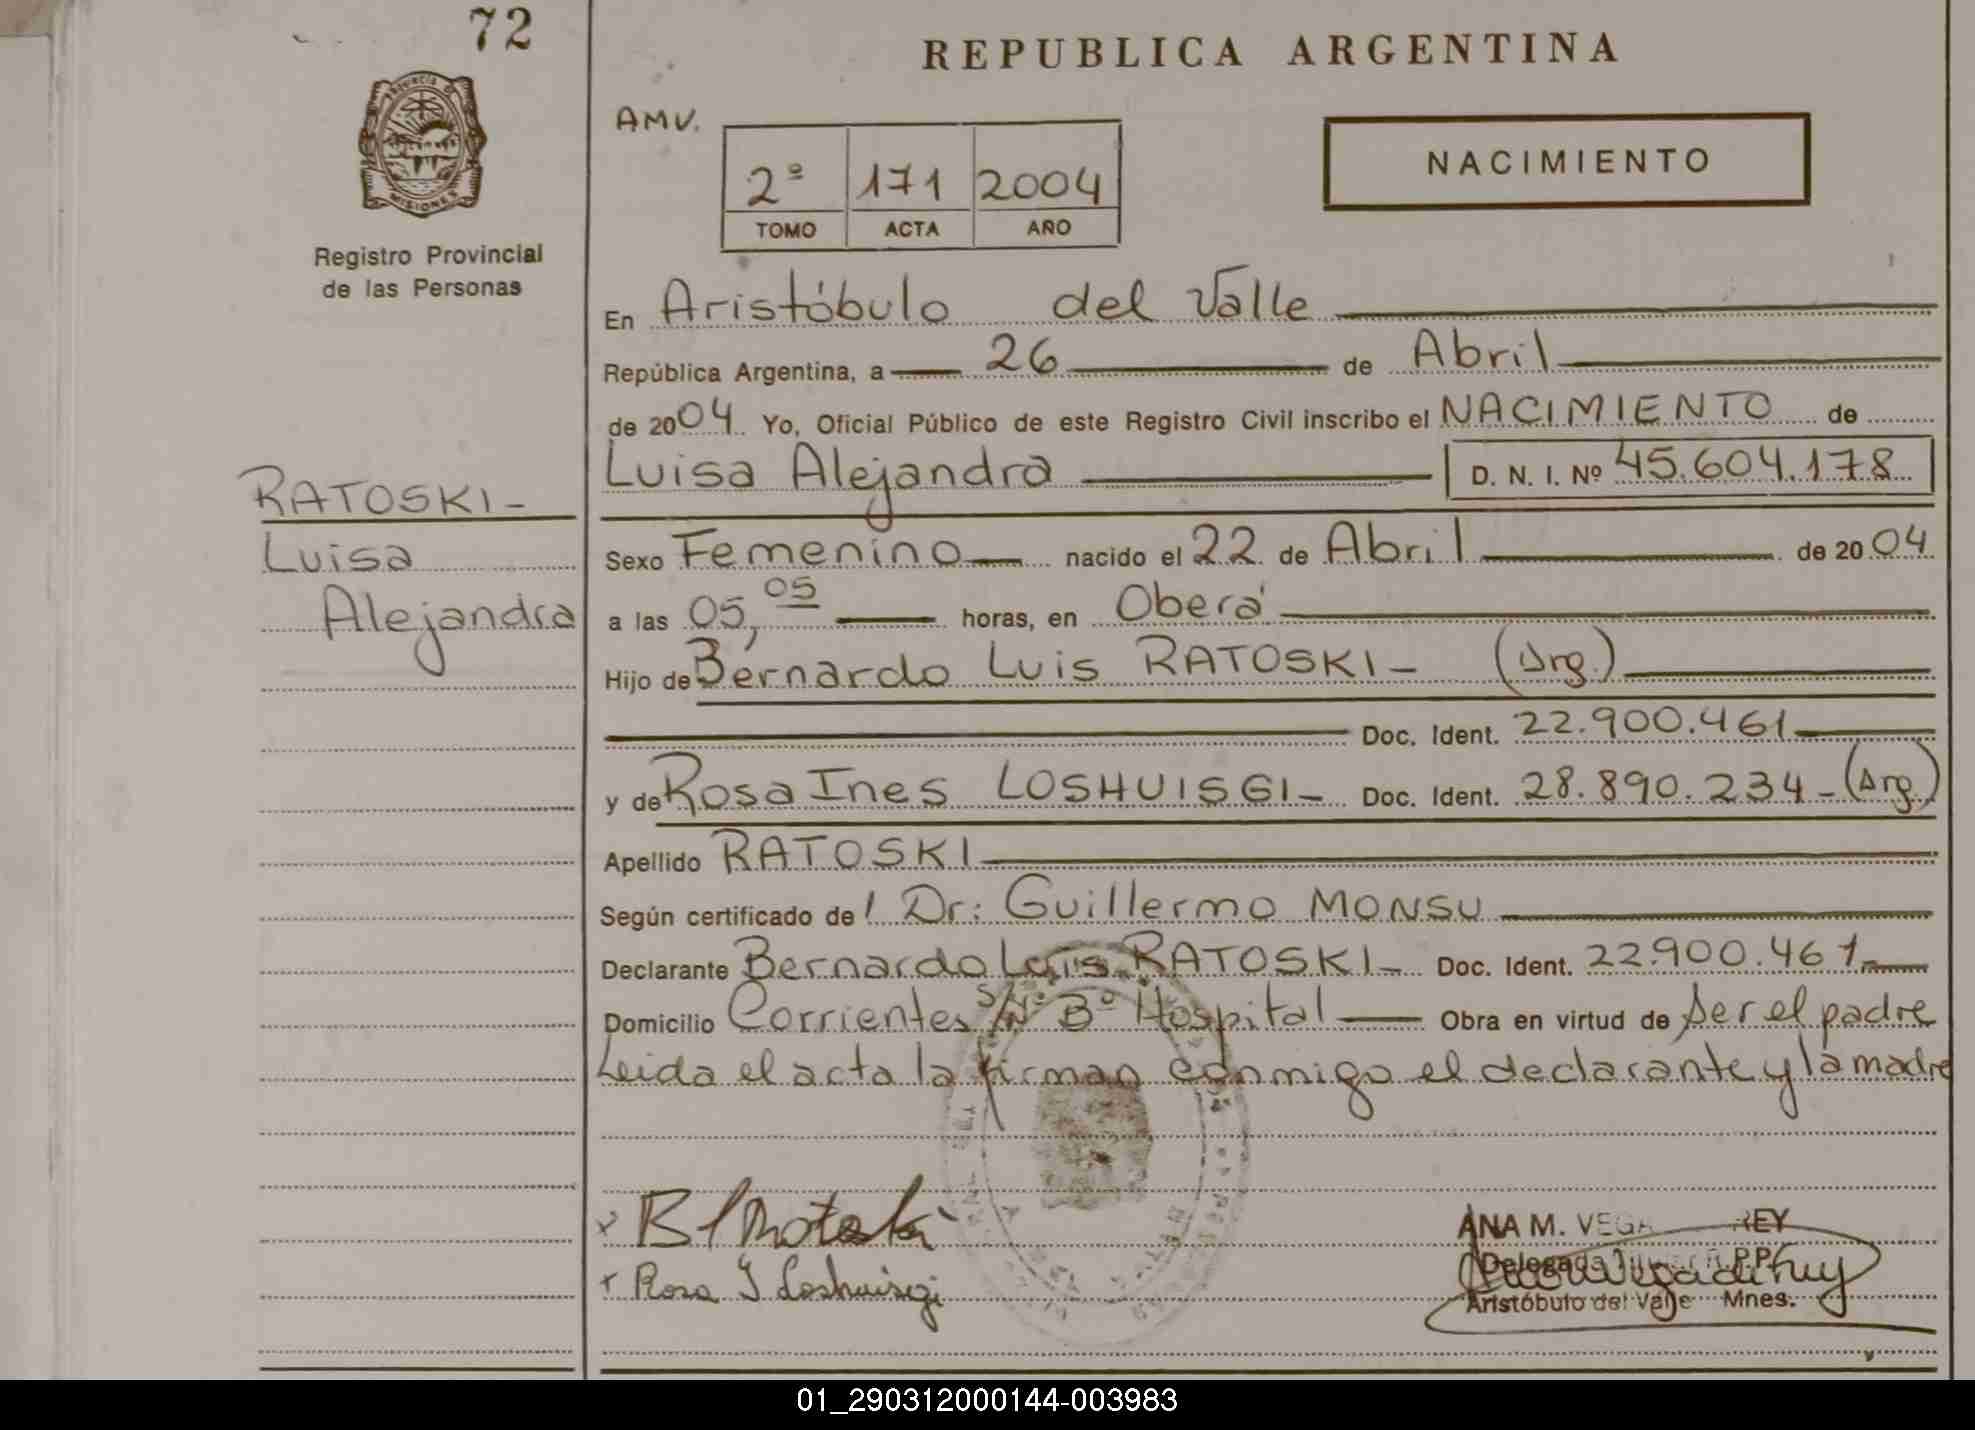 72
REPUBLICA ARGENTINA
PROVINCIA D
MISIONES
Registro Provincial
de las Personas
AMV.
2º 171 2004
TOMO ACTA AÑO
NACIMIENTO
En Aristóbulo del Valle
República Argentina, a 26 de Abril
de 2004. Yo, Oficial Público de este Registro Civil inscribo el NACIMIENTO de
Luisa Alejandra D. N. I. Nº 45.604.178
RATOSKI-
Luisa
Alejandra
Sexo Femenino nacido el 22 de Abril de 2004
a las 05,05 horas, en Oberá
Hijo de Bernardo Luis RATOSKI- (Arg.)
Doc. Ident. 22.900.461
y de Rosa Ines LOSHUISGI- Doc. Ident. 28.890.234-(Arg.)
Apellido RATOSKI
Según certificado de l Dr: Guillermo MONSU
Declarante Bernardo Luis RATOSKI- Doc. Ident. 22.900.461-
Domicilio Corrientes S/Nº Bº Hospital Obra en virtud de ser el padre
Leida el acta la firman conmigo el declarante y la madre
x
+ Rosa I Loshuisgi
ANA M. VEGA REY
Delegada R.P.P.
Aristóbulo del Valle Mnes.
01_290312000144-003983